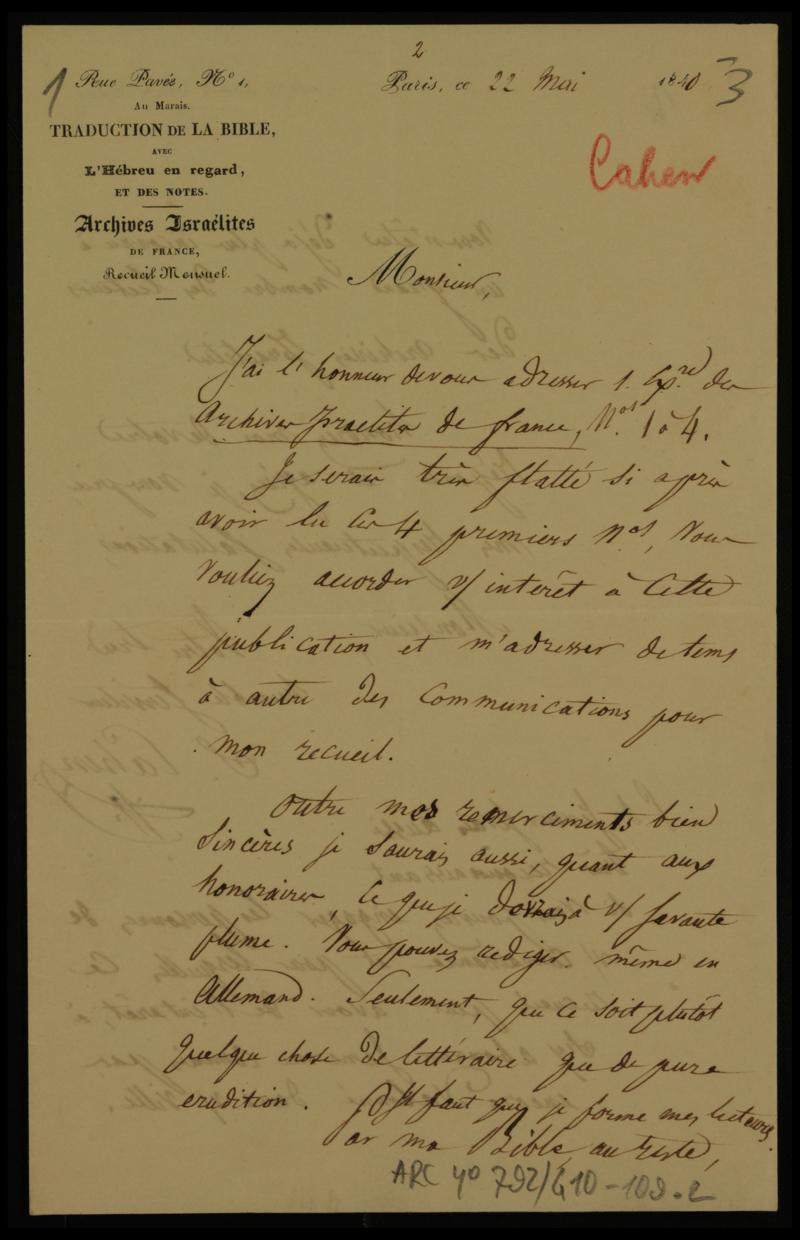 2
1
Rue Pavée, Nº 1,
Au Marais.
TRADUCTION DE LA BIBLE,
AVEC
L'Hébreu en regard,
ET DES NOTES.
Archives Israélites
DE FRANCE,
Recueil Mensuel.
Paris, ce 22 Mai 1840
3
Cahen
Monsieur,
J'ai l'honneur de vous adresser 1. Exp.re des
Archives Israelites de france, Nos. 1 à 4.
Je serais très flatté si après
avoir lu ces 4 premiers Nos, Vous
Vouliez accorder v/ intérêt à cette
publication et m'adresser de tems
à autre des Communications pour
mon recueil.
Outre mes remerciments bien
Sincères je Saurais aussi, quant aux
honoraires, ce que je devrais à v/ savante
plume. Vous pouvez rediger même en
Allemand. Seulement, que ce soit plutôt
quelque chose de littéraire que de pure
erudition. Il faut que je forme mes lecteurs.
or ma Bible, au reste,
ARC 4º 792/G10-109-2